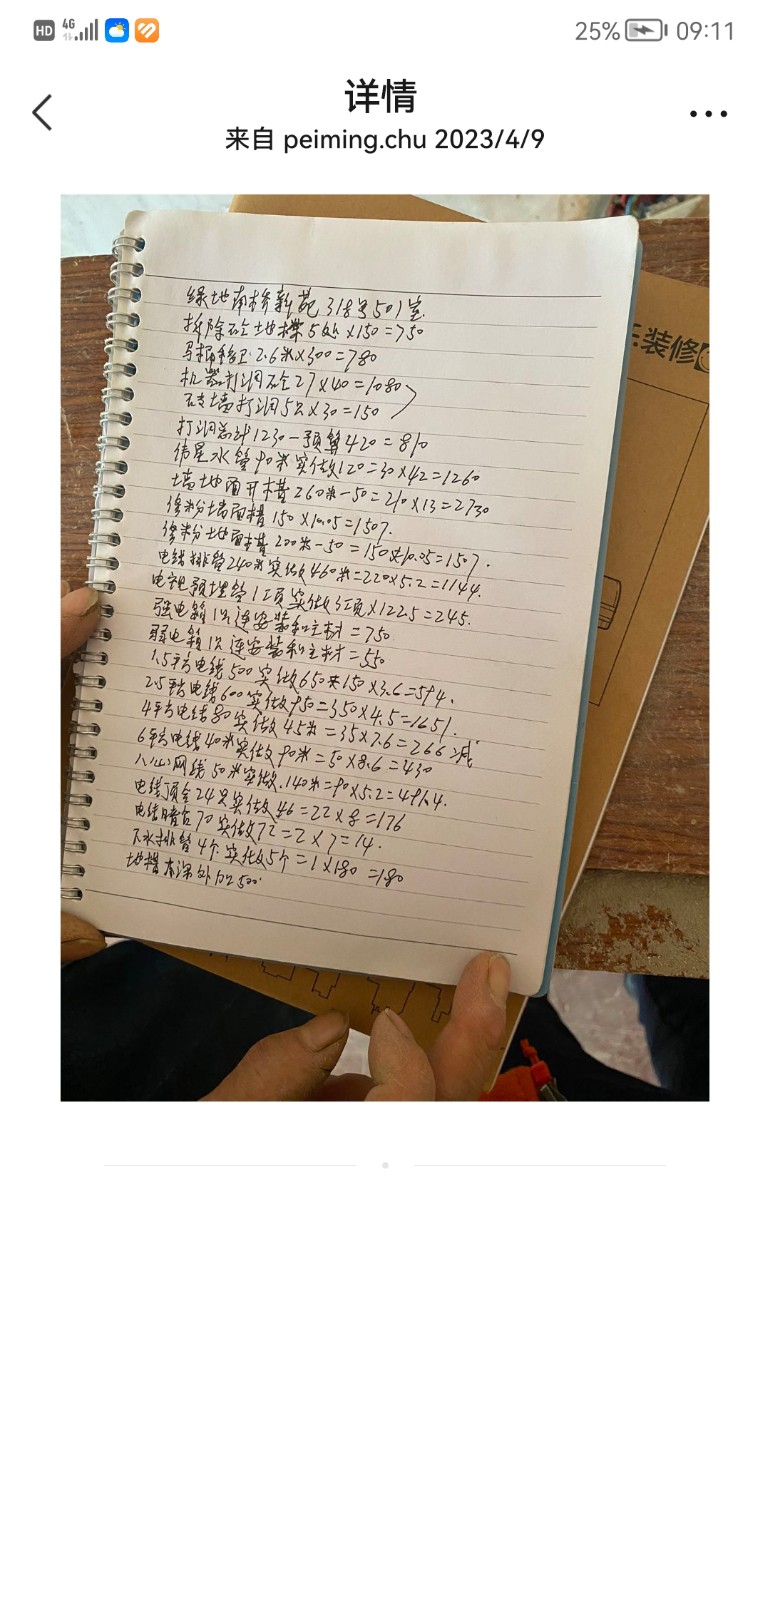 HD 4G 25% 09:11
详情
来自 peiming.chu 2023/4/9
装修
绿地南桥新苑318号501室
拆除砼地 5处×150=750
马桶移卫 2.6米×300=780
机器打洞砼27×40=1080
砖墙打洞5只×30=150
打洞总计1230-预算420=810
伟星水管90米实做120=30×42=1260
墙地面开槽260米-50=210×13=2730
修粉墙面槽150×10.05=1507.
修粉地面槽200米-50=150×10.05=1507.
电线排管240米实做460米=220×5.2=1144.
电视预埋管1项实做3项×122.5=245.
强电箱1只连安装和主材=750
弱电箱1只连安装和主材=550
1.5平方电线500实做650米150×3.6=594.
2.5平方电线600实做950=350×4.5=1651.
4平方电线80实做45米=35×7.6=266减
6平方电线40米实做90米=50×8.6=430
八心网线50米实做.140米=90×5.2=491.4.
电线顶合24只实做46=22×8=176
电线暗合70实做72=2×7=14.
下水排管4个实做5个=1×180=180
地槽 深外加500.